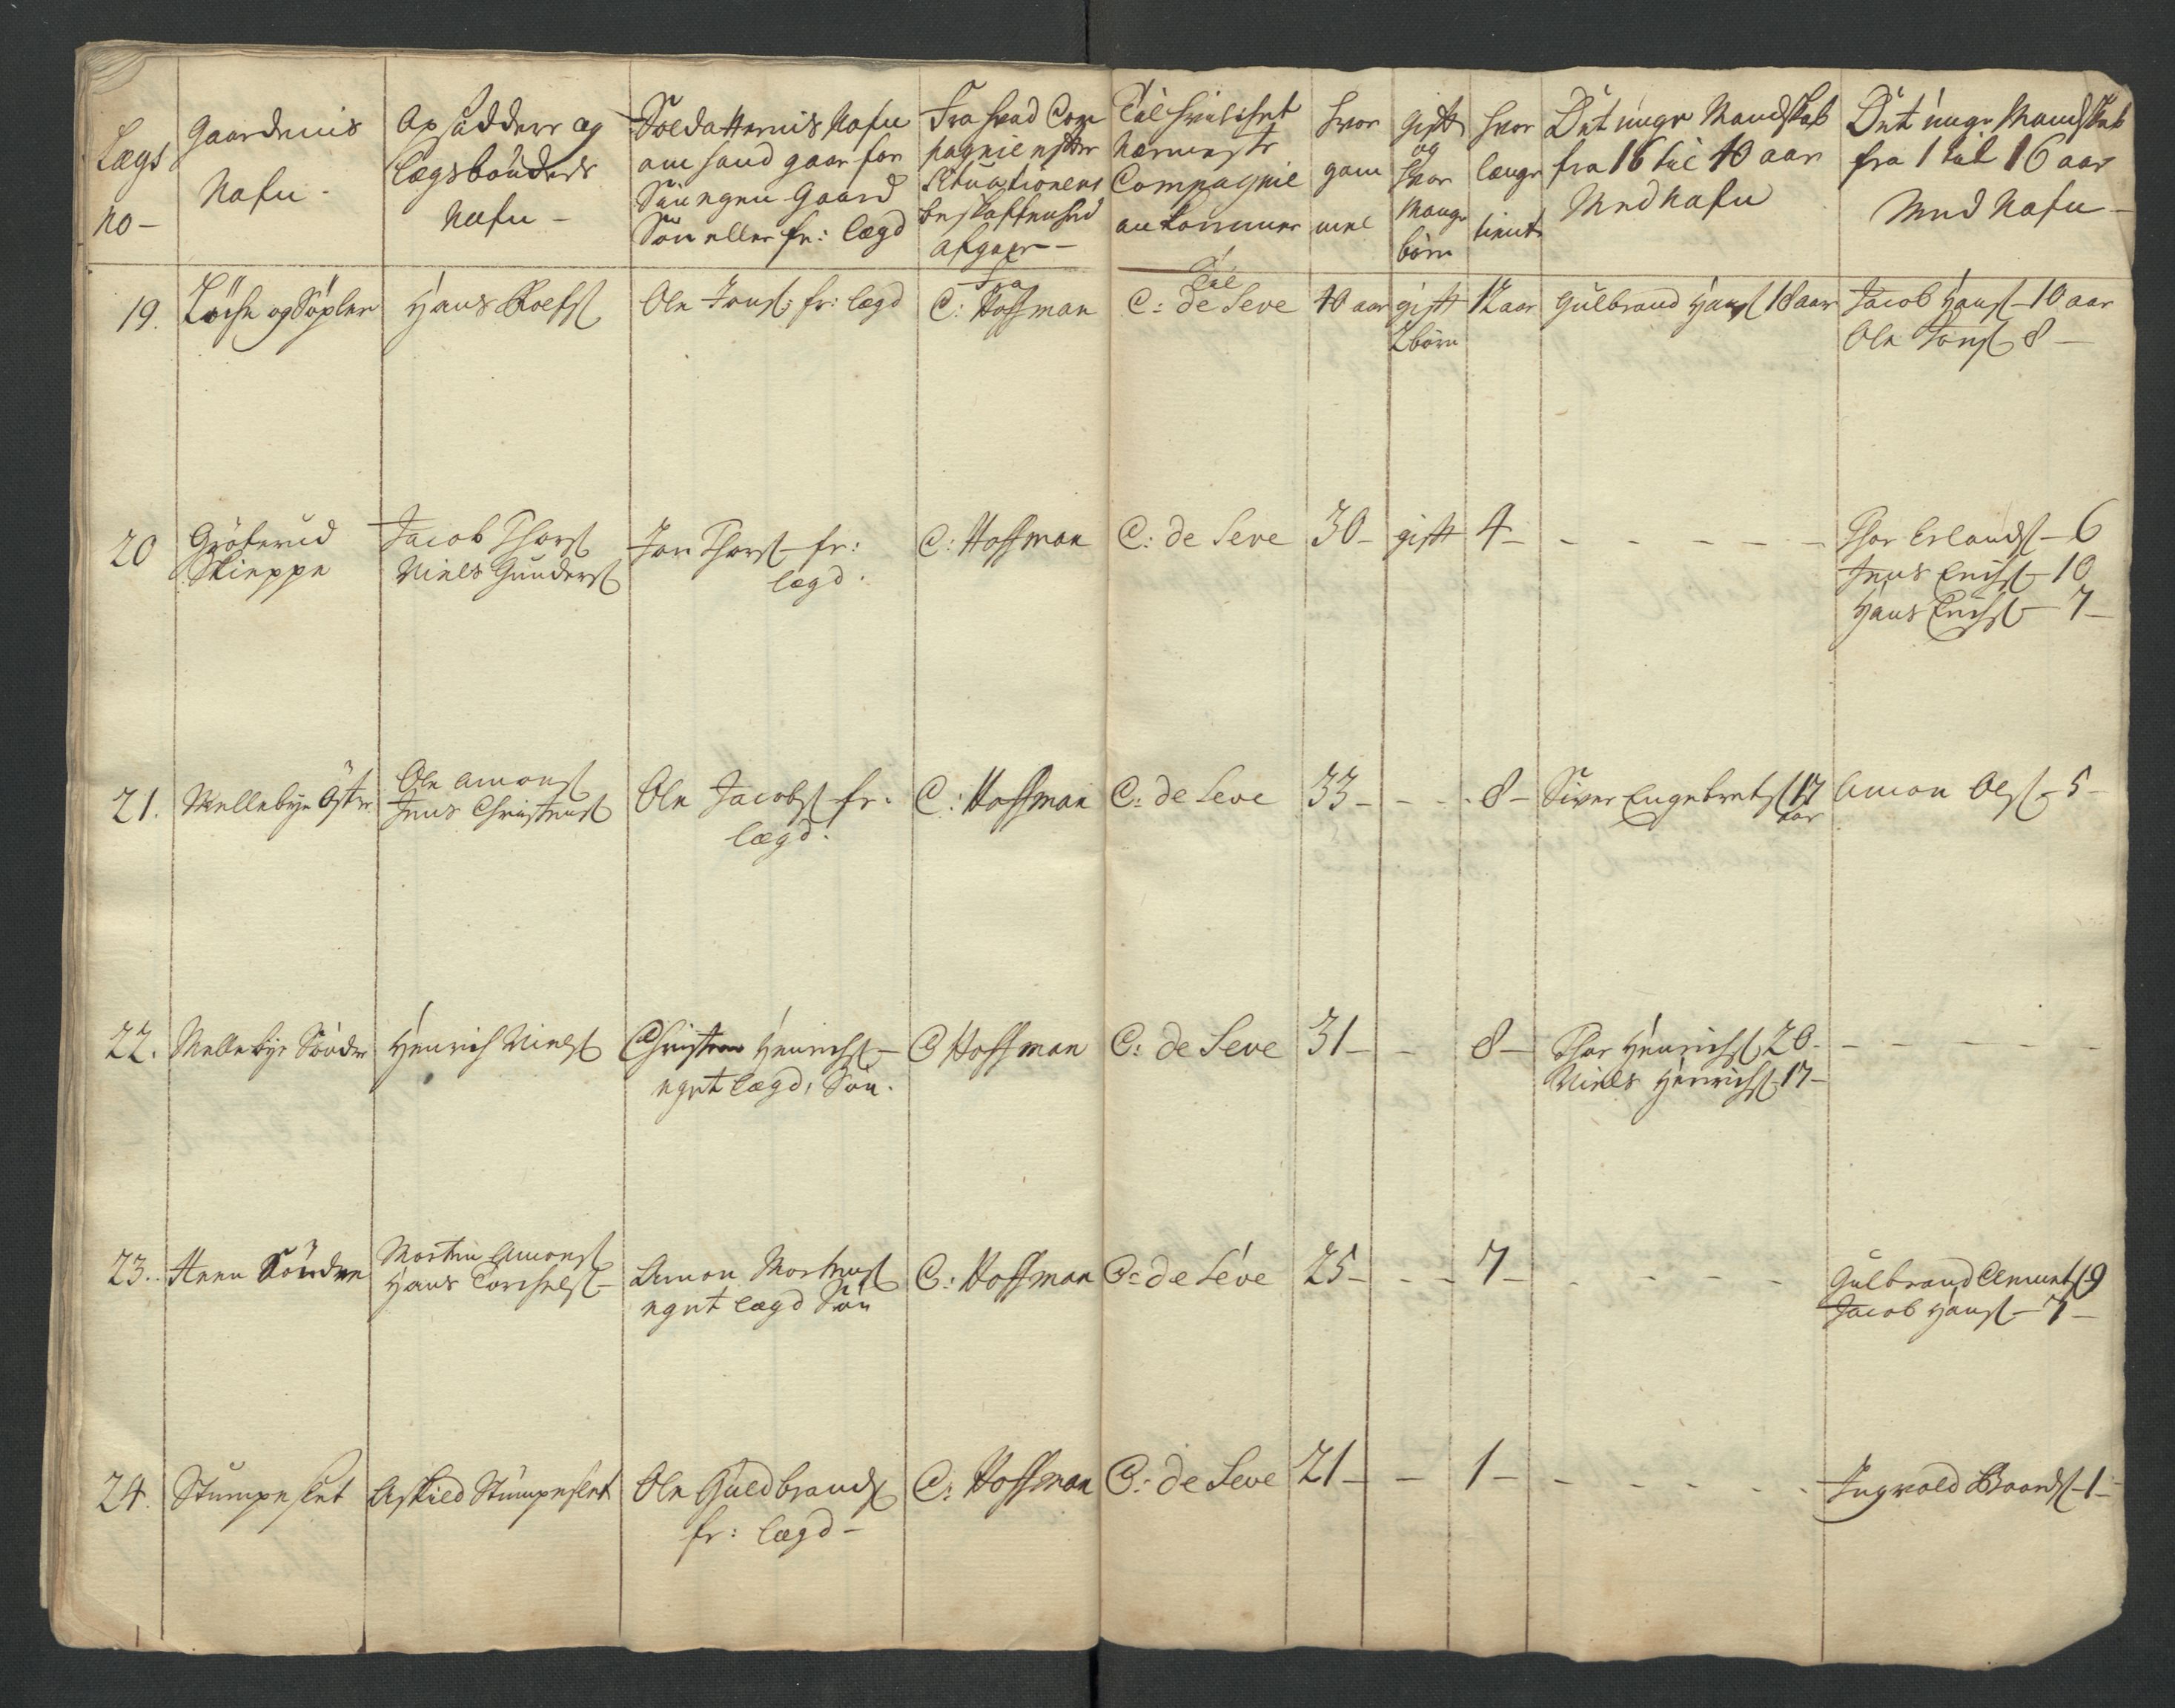 Lægs
no-
Gaardenis
Nafn-
Opsidders og
lægsbønders
Nafn-
Soldatternis Nafn
om hand gaar for
Sin egen Gaard
Søn eller fr: lægd
Fra hvad Com
pagnie efter
Situationens
beskaffenhed
afgaar-
Til hvilchet
nærmeste
Compagnie
ankommer
hvor
gam
mel
gift
og
hvor
mange
børn
hvor
længe
tient
Det unge Mandskab
fra 16 til 40 aar
Med Nafn
Det unge Mandskab
fra 1 til 16 aar
Med Nafn-
19.
og Søpler
Hans Roelfs
Ole Jens: fr: lægd
Fra
C: Hoffman
Til
C: de Seve
40 aar
gift
2 børn
12 aar
Gulbrand Hans 18 aar
Jacob Hans-10 aar
Ole Jons 8-
20
Grøterud
Skieppe
Jacob Thors
Niels Gunders
Jon Thors-fr:
lægd.
C: Hoffman
C: de Seve
30-
gift
4-
- - - - - -
Thor Erlands-6
Jens Erichs-10
Hans Erichs-7-
21.
Mellebye Øster
Ole Amons
Jens Christens
Ole Jacobs-fr.
lægd.
C: Hoffman
C: de Seve
33-
- - -
8-
Siver Engebrets 17
aar
Amon Ols-5-
22.
Mellebye Sønder
Henrich Niels
Christen Henrichs-
eget lægd, Søn.
C Hoffman
C: de Seve
31-
-
8-
Thor Henrichs 20-
Niels Henrichs-17-
- - - - -
23..
Heen Søndre
Morten Amons
Hans Torchels-
Amon Mortens
eget lægd Søn
C: Hoffman
C: de Seve
25-
- -
7-
- - - - -
Gulbrand Clemets 9
Jacob Hans-7-
24.
Stumpeslet
Askild Stumpeslet
Ole Guldbrands
fr: lægd-
C: Hoffman
C: de Seve
21-
-
1-
- - - - -
Ingvald Baards-1-